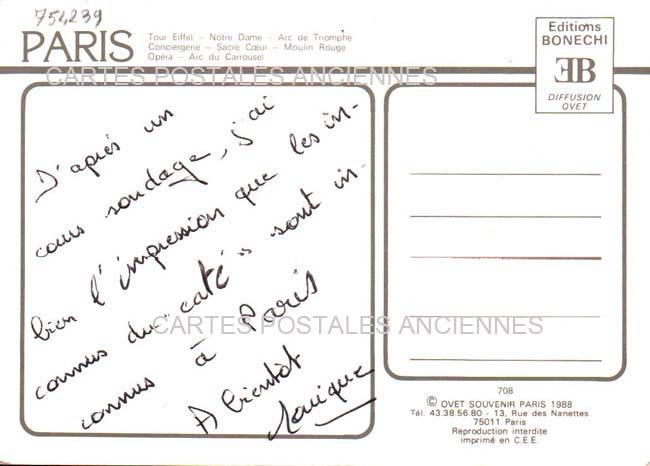 754239
PARIS
Tour Eiffel – Notre Dame – Arc de Triomphe
Conciergerie – Sacré Cœur – Moulin Rouge
Opéra – Arc du Carrousel
Editions
BONECHI
EB
DIFFUSION
OVET
CARTES POSTALES ANCIENNES
D'après un
cours sondage, j'ai
bien l'impression que les in-
connus du "caté" sont in-
connus à Paris
A bientôt
CARTES POSTALES ANCIENNES
708
© OVET SOUVENIR PARIS 1988
Tél. 43.38.56.80 - 13, Rue des Nanettes
75011 Paris
Reproduction interdite
imprimé en C.E.E.